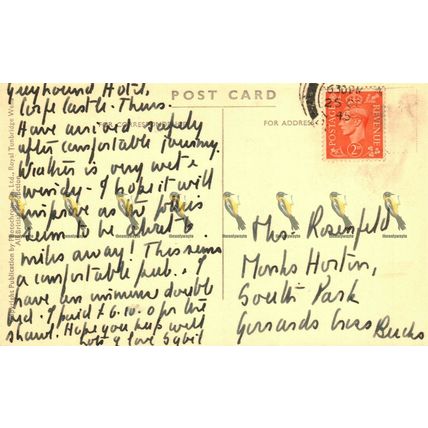 Greyhound Hotel,
Corfe Castle. Thurs.
Have arrived safely
after comfortable journey.
Weather is very wet &
windy. I hope it will
improve as the
seem to be about 2
miles away! This seems
a comfortable pub. I
have an immense double
bed. I paid £6.10.0 for the
shawl. Hope you keep well
lots of love Sybil
POST CARD
FOR CORRESPONDENCE
FOR ADDRESS
Copyright Publication by Photochrom Co., Ltd., Royal Tunbridge Wells
All British Production
25
POSTAGE
REVENUE
2D
Mrs. Rosenfeld
Monks Horton,
South Park
Gerrards Cross
Bucks